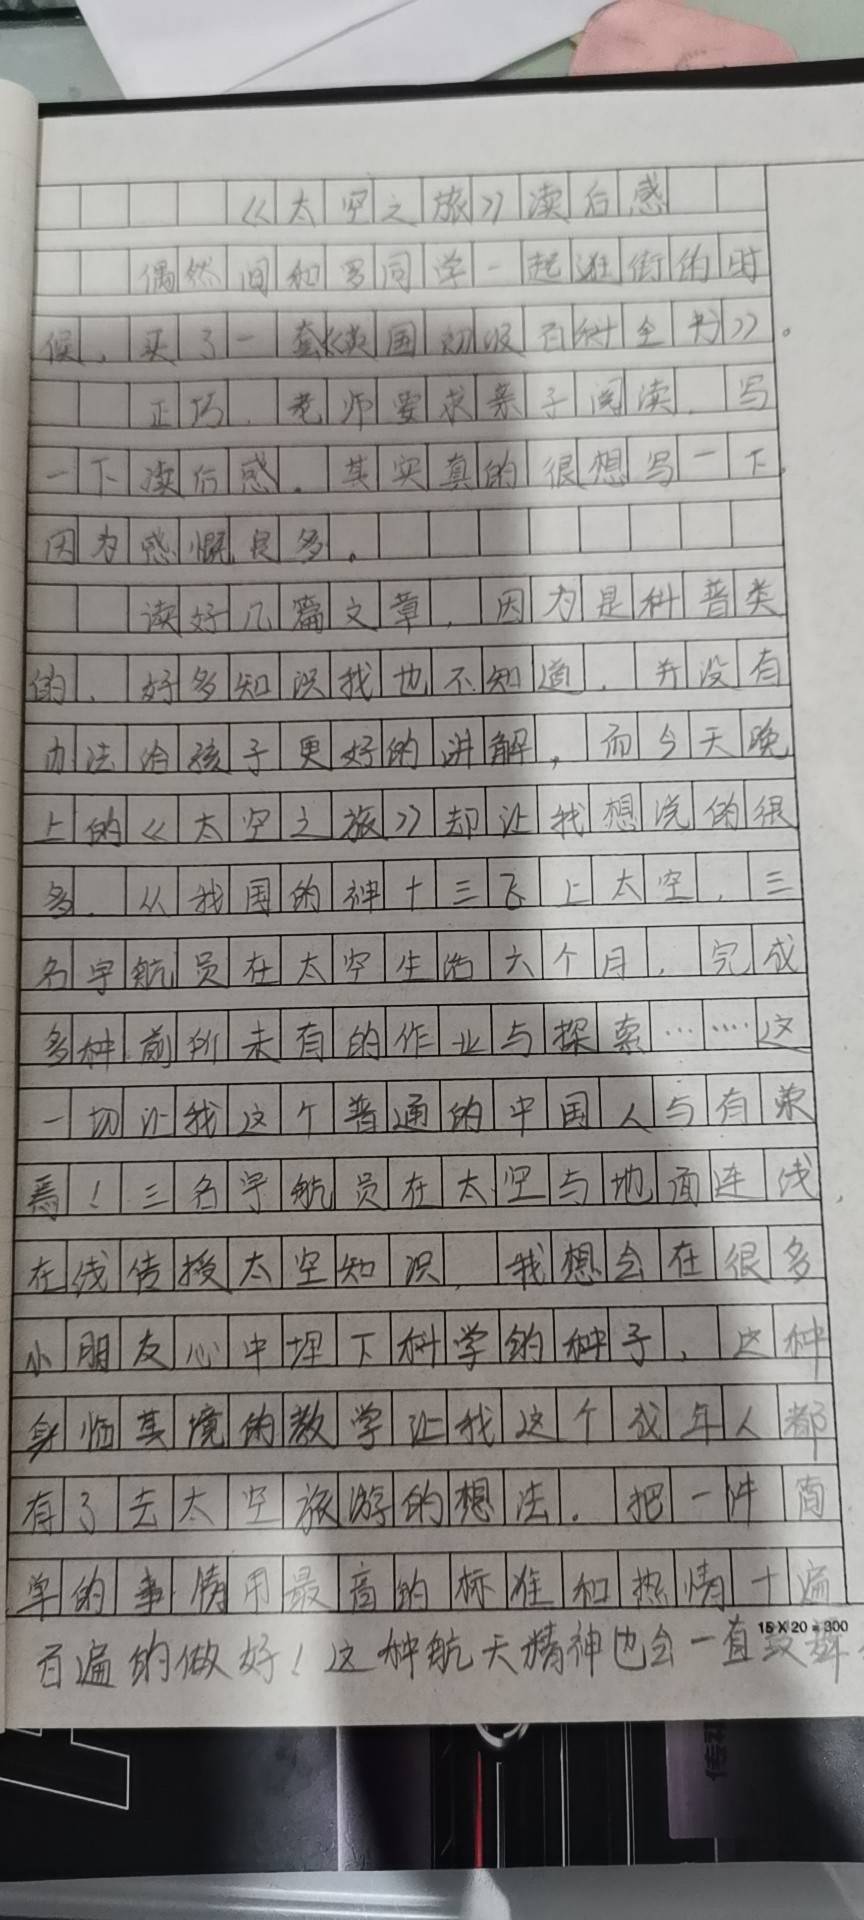 《太空之旅》读后感
偶然间和罗同学一起逛街的时
候，买了一套《美国初级百科全书》。
正巧，老师要求亲子阅读，写
一下读后感。其实真的很想写一下，
因为感慨良多。
读好几篇文章，因为是科普类
的，好多知识我也不知道，并没有
办法给孩子更好的讲解，而今天晚
上的《太空之旅》却让我想说的很
多，从我国的神十三飞上太空，三
名宇航员在太空生活六个月，完成
多种前所未有的作业与探索……这
一切让我这个普通的中国人与有荣
焉！三名宇航员在太空与地面连线，
在线传授太空知识，我想会在很多
小朋友心中埋下科学的种子，这种
身临其境的教学让我这个成年人都
有了去太空旅游的想法。把一件简
单的事情用最高的标准和热情十遍
百遍的做好！这种航天精神也会一直
15 X 20 = 300